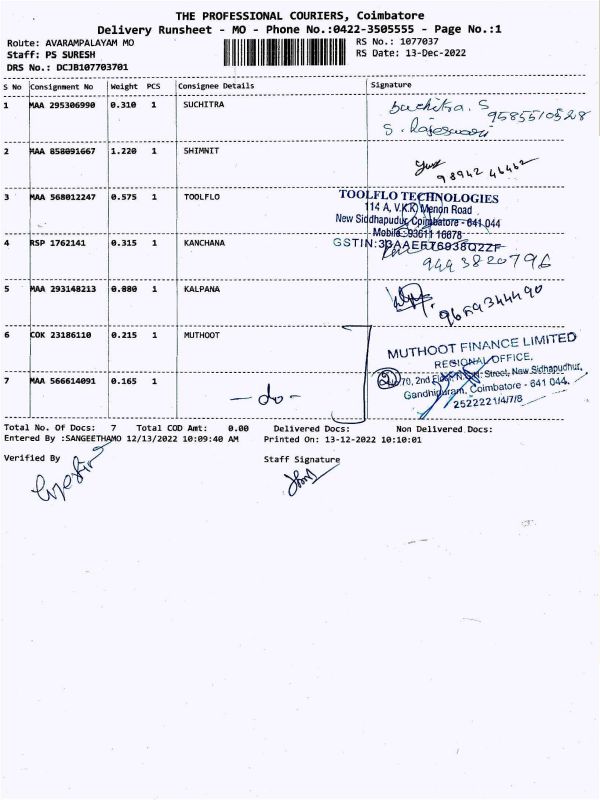 THE PROFESSIONAL COURIERS, Coimbatore
Delivery Runsheet - MO - Phone No.:0422-3505555 - Page No.:1
Route: AVARAMPALAYAM MO
RS No.: 1077037
Staff: PS SURESH
RS Date: 13-Dec-2022
DRS No.: DCJB107703701
S No Consignment No Weight PCS Consignee Details Signature
1 MAA 295306990 0.310 1 SUCHITRA Suchitra. S
9585510528
S. Rajeswari
2 MAA 858091667 1.220 1 SHIMNIT
98942 46462
3 MAA 568012247 0.575 1 TOOLFLO
TOOLFLO TECHNOLOGIES
114 A, V.K.K. Menon Road
New Siddhapudur, Coimbatore - 641 044
Mobile: 93611 16678
GSTIN:33AAEFT6938Q2ZF
4 RSP 1762141 0.315 1 KANCHANA
9443820796
5 MAA 293148213 0.080 1 KALPANA
9659344490
6 COK 23186110 0.215 1 MUTHOOT
MUTHOOT FINANCE LIMITED
REGIONAL OFFICE,
70, 2nd Floor, Street, New Sidhapudhur,
Gandhipuram, Coimbatore - 641 044.
2522221/4/7/8
7 MAA 566614091 0.165 1
- do -
Total No. Of Docs: 7 Total COD Amt: 0.00 Delivered Docs: Non Delivered Docs:
Entered By :SANGEETHAMO 12/13/2022 10:09:40 AM Printed On: 13-12-2022 10:10:01
Verified By Staff Signature